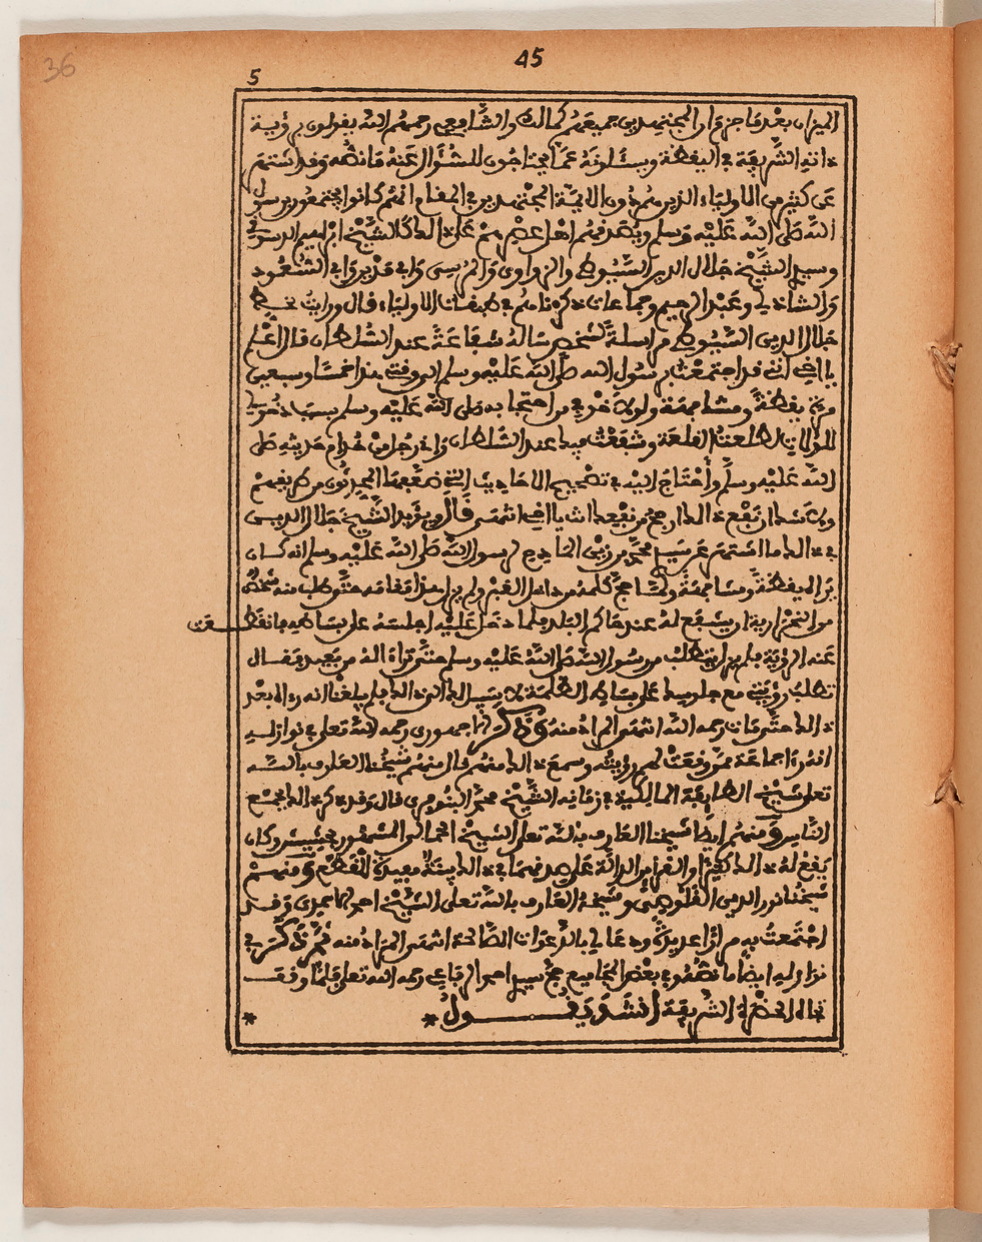 36
45
5
الميزان بعد ما جزم وان المجتهدين جميعهم كمالك والشافعي رحمهم الله يقولون برؤية
ذاته الشريفة في اليقظة ويسئلونه عما يحتاجون للسؤال عنه ما نصه وقد اشتهر
عن كثير من الاولياء الذين هم دون الايمة المجتهدين في المقام انهم كانوا يجتمعون برسول
الله صلى الله عليه وسلم ويصدقهم اهل عصرهم على ذالك كالشيخ ابراهيم الدسوقي
وسيدي الشيخ جلال الدين السيوطي والزواوي والمرسي وابي مدين وابي السعود
والشاذلي وعبد الرحيم وجماعات ذكرناهم في طبقات الاولياء قال ورايت بخط
جلال الدين السيوطي مراسلة لشخص ساله شفاعة عند السلطان قال اعلم
يا اخي انني قد اجتمعت برسول الله صلى الله عليه وسلم الى وقتي هذا خمسا وسبعين
مرة يقظة ومشافهة ولولا خوفي من احتجابه صلى الله عليه وسلم بسبب دخولي
للولات لطلعت القلعة وشفعت فيك عند السلطان واني رجل من خدام حديثه صلى
الله عليه وسلم واحتاج اليه في تصحيح الاحاديث التي ضعفها المحدثون من طريقهم
ولا شك ان نفع ذالك ارجح من نفعك انت يا اخي انتهى قال ويؤيد الشيخ جلال الدين
في ذالك ما اشتهر عن سيدي محمد بن زين المادح لرسول الله صلى الله عليه وسلم انه كان
يراه يقظة ومشافهة ولما حج كلمه من داخل القبر ولم يزل هذا مقامه حتى طلب منه شخص
من النحرارية ان يشفع له عند حاكم البلد فلما دخل عليه اجلسه على بساطه فانقطعت
عنه الرؤية فلم يزل يتطلب من رسول الله صلى الله عليه وسلم حتى تراءا له من بعيد فقال
تطلب رؤيتي مع جلوسك على بساط الظلمة لا سبيل لك الى ذالك فلم يبلغنا انه رءاه بعد
ذالك حتى مات رحمه الله انتهى المراد منه وذكر الاجهوري رحمه الله تعلى في نوازله
انه رءا جماعة ممن وقعت لهم رؤيته وسمع ذالك منهم قال منهم شيخنا العارف بالله
تعلى شيخ الطايفة المالكية في زمانه الشيخ محمد البنوفري قال وقد ذكر ذالك بجمع
الناس ومنهم ايضا شيخنا العارف بالله تعلى الشيخ الجمالي المشهور وكان
يقع له ذالك كثيرا والقراين الدالة على صدقهما في ذالك مفيدة القطع ومنهم
شيخنا نور الدين القلوصني وشيخه العارف بالله تعلى الشيخ احمد وقد
اجتمعت به مرارا عديدة ودعا لي بالدعوات الصالحة انتهى المراد منه ثم ذكر في
نوازله ايضا ما نصه وفي بعض المجاميع حج سيدي احمد الرفاعي رحمه الله تعلى فلما وقف
تجاه الحضرة الشريفة انشد يقول * *